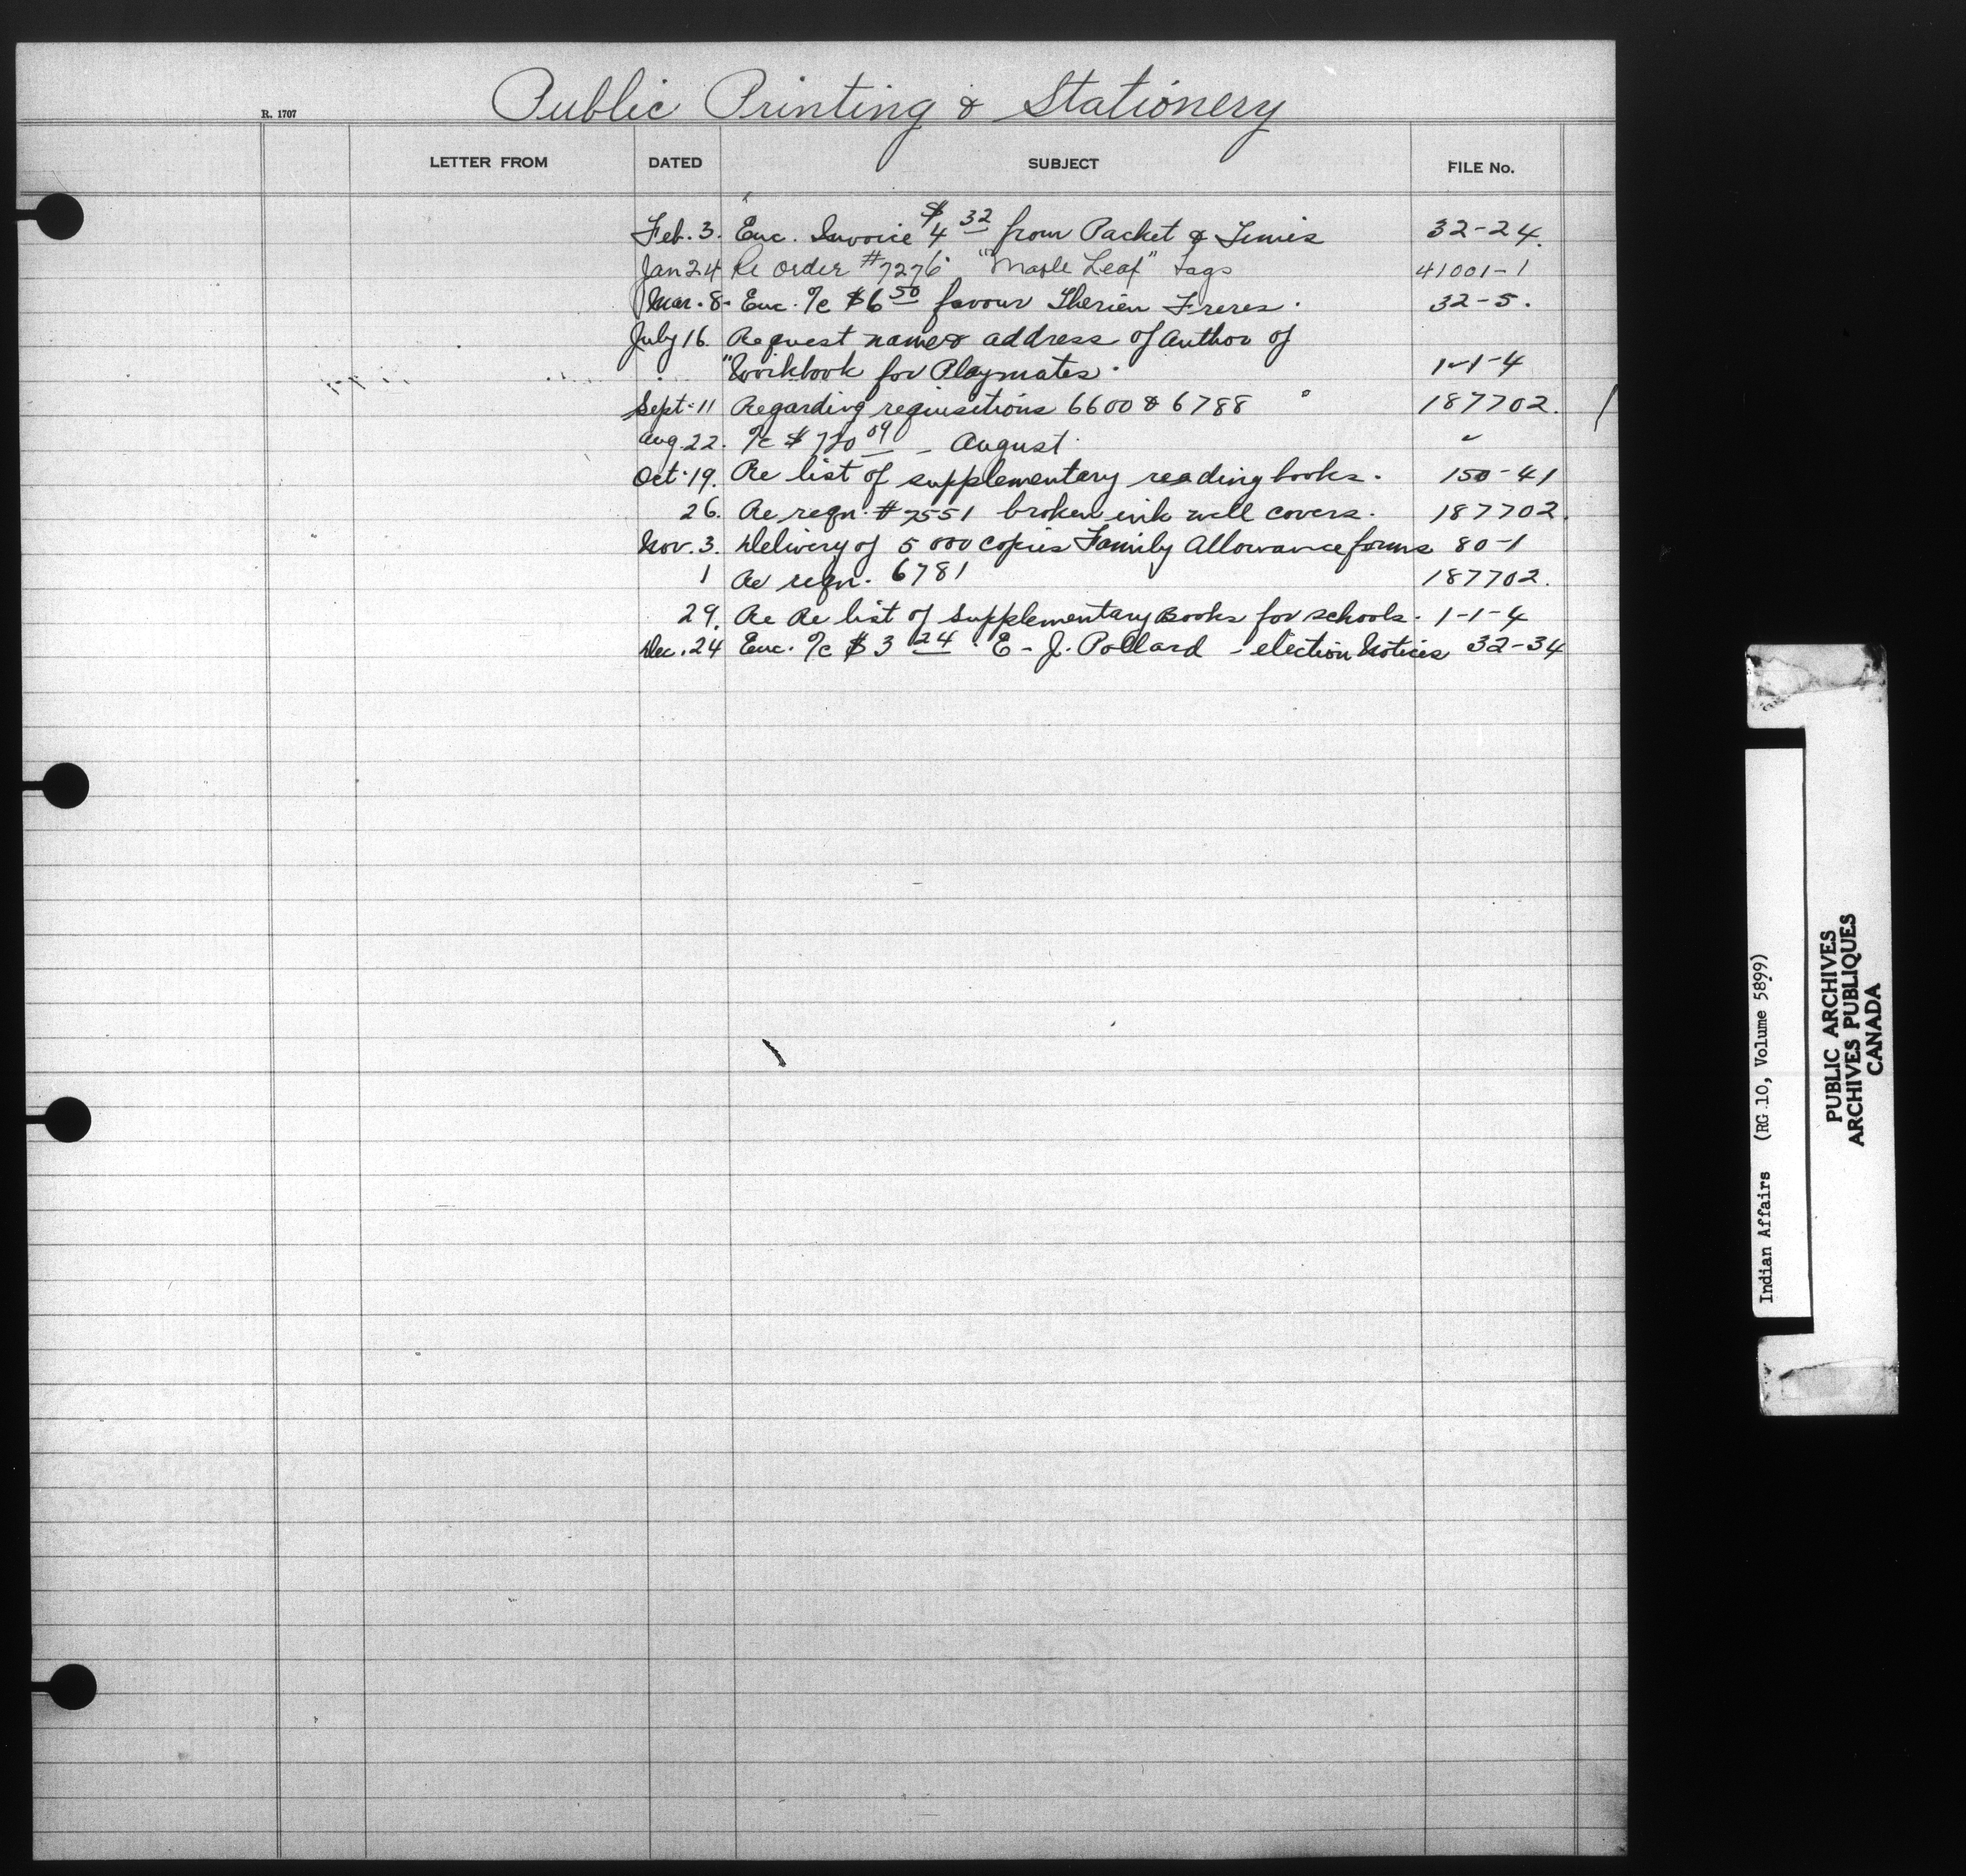 Public Printing & Stationery
R. 1707
LETTER FROM DATED SUBJECT FILE No.
Feb. 3. Enc. Invoice $4 32 from Packet & Times 32-24.
Jan 24 Re order #7276 "Maple Leaf" tags 41001-1
Mar. 8. Enc. a/c $6 50 favour Therien Freres. 32-5.
July 16. Request name & address of Author of
"Workbook for Playmates. 1-1-4
Sept. 11 Regarding requisitions 6600 & 6788 " 187702.
Aug. 22. a/c $720 09 - August "
Oct. 19. Re list of supplementary reading books. 150-41
26. Re reqn. #7551 broken ink well covers. 187702.
Nov. 3. Delivery of 5000 copies Family Allowance forms 80-1
1 Re reqn. 6781 187702.
29. Re Re list of Supplementary Books for schools. 1-1-4
Dec. 24 Enc. a/c $3 24 E-J. Pollard - election Notices 32-34
Indian Affairs (RG 10, Volume 5899)
PUBLIC ARCHIVES
ARCHIVES PUBLIQUES
CANADA